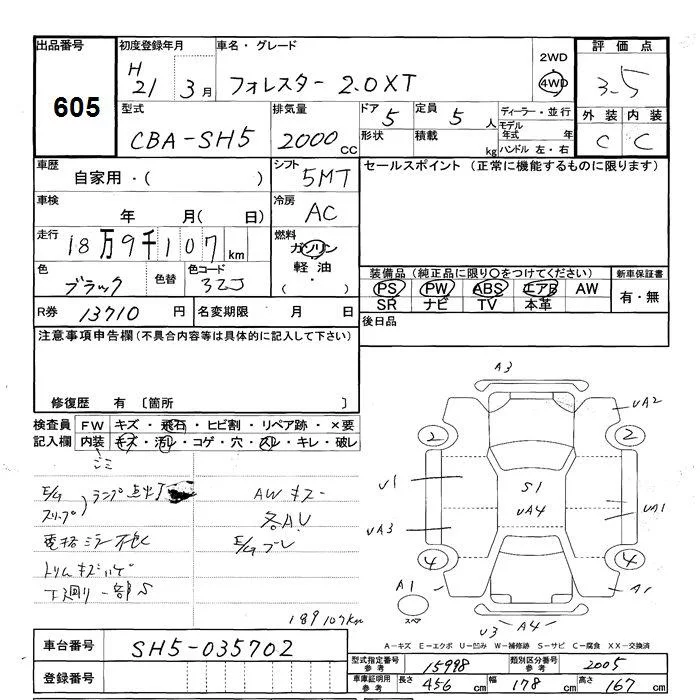 出品番号 初度登録年月 車名・グレード 2WD 4WD 評価点
605 H21年 3月 フォレスター 2.0XT 3.5
型式 排気量 ドア 5 定員 5人 ディーラー・並行 外装 内装
CBA-SH5 2000cc 形状 積載 kg モデル年式 年 C C
ハンドル 左・右
車歴 シフト セールスポイント (正常に機能するものに限ります)
自家用・( ) 5MT
車検 冷房
年 月(日) AC
走行 燃料
18万9千107km ガソリン
軽油
( ・ )
色 色替 色コード 装備品(純正品に限り○をつけてください) 新車保証書
ブラック 32J PS PW ABS エアB AW 有・無
SR ナビ TV 本革
R券 13710円 名変期限 月 日 後日品
注意事項申告欄(不具合内容等は具体的に記入して下さい)
修復歴 有 〔箇所 〕
検査員 FW キズ・飛石・ヒビ割・リペア跡・×要
記入欄 内装 キズ・汚レ・コゲ・穴・スレ・キレ・破レ
E/g ランプ点灯 AWキズ
スリップ 各AU
電格ミラー不良 E/gブレ
トリムキズ
下廻り一部S
189107km
A3
UA2
2 2
U1 S1 UA1
UA3 UA4
4 4
A1 A1
スペア
U3 A4
車台番号 SH5-035702
登録番号
A-キズ E-エクボ U-凹み W-補修跡 S-サビ C-腐食 XX-交換済
型式指定番号 参考 15998 類別区分番号 参考 2005
車庫証明用 参考 長さ 456cm 幅 178cm 高さ 167cm